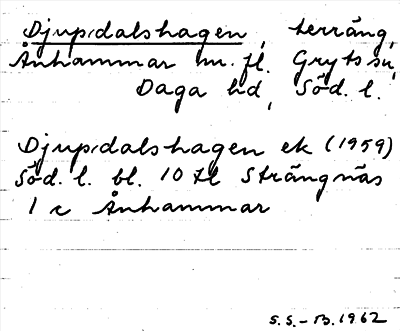 Djupdalshagen, terräng,
Ånhammar m. fl. Gryts sn,
Daga hd, Söd. l.
Djupdalshagen ek (1959)
Söd. l. bl. 10 Strängnäs
1 c Ånhammar
S.S.-B. 1962